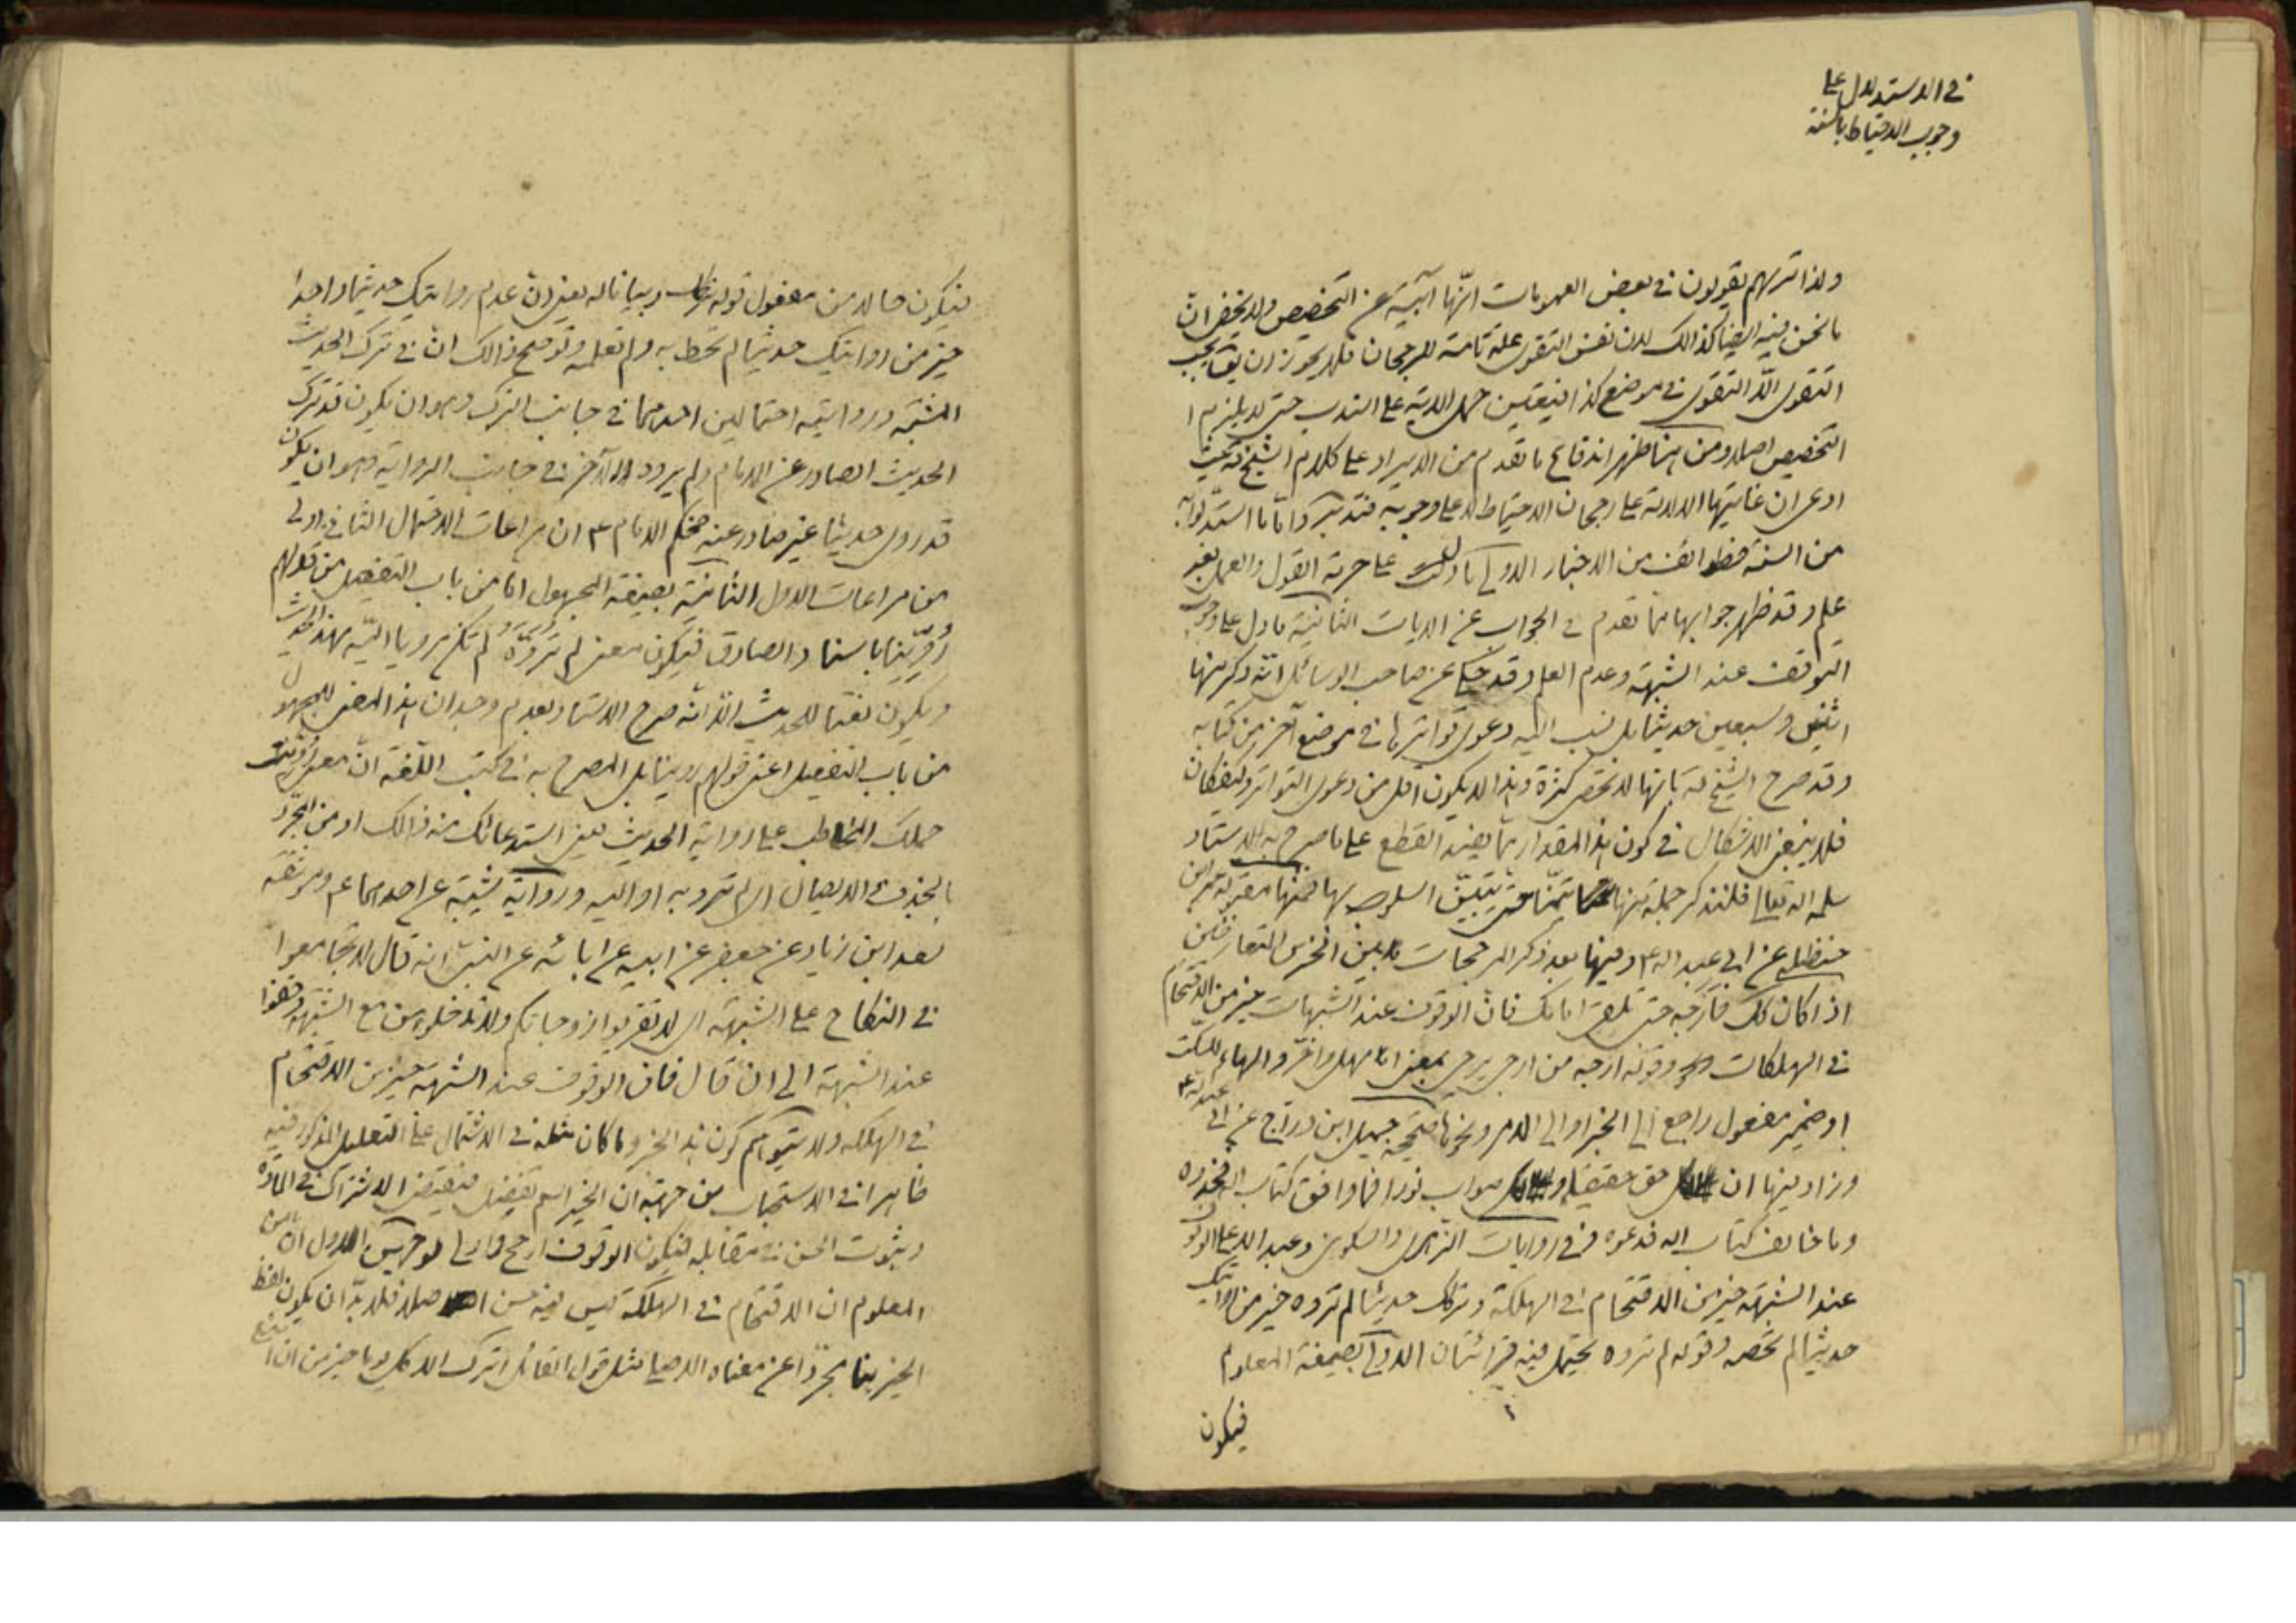 في الاستدلال على
وجوب الاحتياط بالسنة
ولذا تريهم يقولون في بعض العمومات انّها آبية عن التخصيص ولا يخفى انّ
ما نحن فيه ايضا كذالك لان نفس التقوى علة تامة للرجحان فلا يجوز ان يقال يجب
التقوى الّا التقوى في موضع كذا فيتعين حمل الاية على الندب حتى لا يلزم
التخصيص اصلا ومن هنا ظهر اندفاع ما تقدم من الايراد على كلام الشيخ ره حيث
ادعى ان غايتها الدلالة على رجحان الاحتياط لا على وجوبه فتدبر وامّا ما استدلوا به
من السنة فطوائف من الاخبار الاولى ما دلت على حرمة القول والعمل بغير
علم وقد ظهر جوابها مما تقدم في الجواب عن الايات الثانية ما دل على وجوب
التوقف عند الشبهة وعدم العلم وقد حكى عن صاحب الوسائل انّه ذكر منها
اثنين وسبعين حديثا بل نسب اليه دعوى تواترها في موضع آخر من كتابه
وقد صرح الشيخ ره بانها لا تحصى كثرة وهذا لا يكون اقل من دعوى التواتر وكيف كان
فلا ينبغي الاشكال في كون هذا المقدار مما يفيد القطع على ما صرح به الاستاد
سلمه الله تعالى فلنذكر جملة منها تيمّنا حتى يتبيّن اسلوبها فمنها مقبولة عمر ابن
حنظلة عن ابي عبد الله ع وفيها بعد ذكر المرجحات بين الخبرين المتعارضين
اذا كان كك فارجه حتى تلقى امامك فان الوقوف عند الشبهات خير من الاقتحام
في الهلكات وقوله ارجه من ارجى يرجى بمعنى امهل واخّر والهاء للسكت
او ضمير مفعول راجع الى الخبر او الى الامر ونحوها صحيحة جميل ابن دراج عن ابي عبد الله ع
وزاد فيها ان على كل حق حقيقة وعلى كل صواب نورا فما وافق كتاب الله فخذوه
وما خالف كتاب الله فدعوه وفي روايات الزهري والسكوني وعبد الاعلى الوقوف
عند الشبهة خير من الاقتحام في الهلكة وتركك حديثا لم تروه خير من روايتك
حديثا لم تحصه وقوله لم تروه يحتمل فيه قرائتان الاولى بصيغة المعلوم
فيكون
فيكون حالا من مفعول قوله تركك وبيانا له يعني ان عدم روايتك حديثا واحدا
خير من روايتك حديثا لم تحط به ولم تعلمه وتوضيح ذالك ان في ترك الحديث
المشتبه وروايته احتمالين احدهما في جانب الترك وهو ان يكون قد ترك
الحديث الصادر عن الامام ولم يروه والآخر في جانب الرواية وهو ان يكون
قد روى حديثا غير صادر عنه فحكم الامام ع ان مراعات الاحتمال الثاني اولى
من مراعات الاول الثانية بصيغة المجهول امّا من باب التفعيل من قولهم
رُوِّينا باسناد الصادق فيكون معنى لم تروّه لم تكن مرويا اليه بهذا الحديث
ويكون نعتا للحديث الّا انّه صرح الاستاد بعدم وجدان هذا المعنى للمجهول
من باب التفعيل اعني قولهم روينا بل المصرح به في كتب اللّغة انّ معنى روّيت
حملك المخاطب على رواية الحديث يعني استدعائك منه ذالك او من المجرّد
بالحذف والايصال اى لم ترو به او اليه ورواية شيبة عن احدهما ع وموثقة
سعد ابن زياد عن جعفر عن ابيه عن ابائه عن النبي انه قال لا تجامعوا
في النكاح على الشبهة اى لا تقربوا زوجاتكم مع الشبهة وقفوا
عند الشبهة الى ان قال فان الوقوف عند الشبهة خير من الاقتحام
في الهلكة ولا يتوهم كون هذا الخبر وما كان مثله في الاشتمال على التعليل المذكور فيه
ظاهرا في الاستحباب من جهة ان الخير اسم تفضيل فيقتضى الاشتراك في المادة
وثبوت الحسن في مقابله فيكون الوقوف ارجح واولى لوجهين الاول انّ من
المعلوم ان الاقتحام في الهلكة ليس فيه حسن اصلا فلا بدّ ان يكون لفظ
الخير هنا مجرّدا عن معناه الاصلي مثل قول القائل اترك الاكل يوما خير من ان